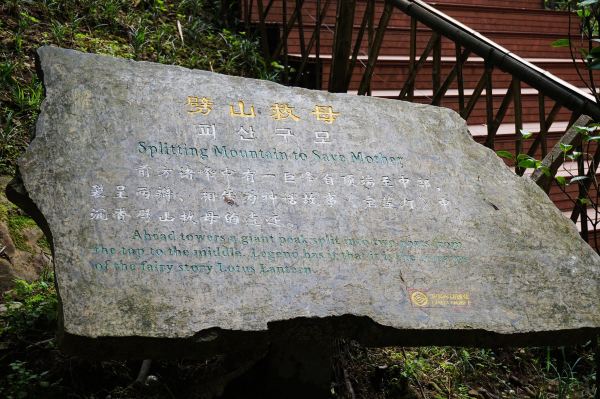 劈山救母
피산구모
Splitting Mountain to Save Mother
前方诸峰中有一巨峰自顶端至中部，
裂呈两瓣，相传为神话故事《宝莲灯》中
沉香劈山救母的遗迹。
Ahead towers a giant peak split into two parts from
the top to the middle. Legend has it that it is the
of the fairy story Lotus Lantern.